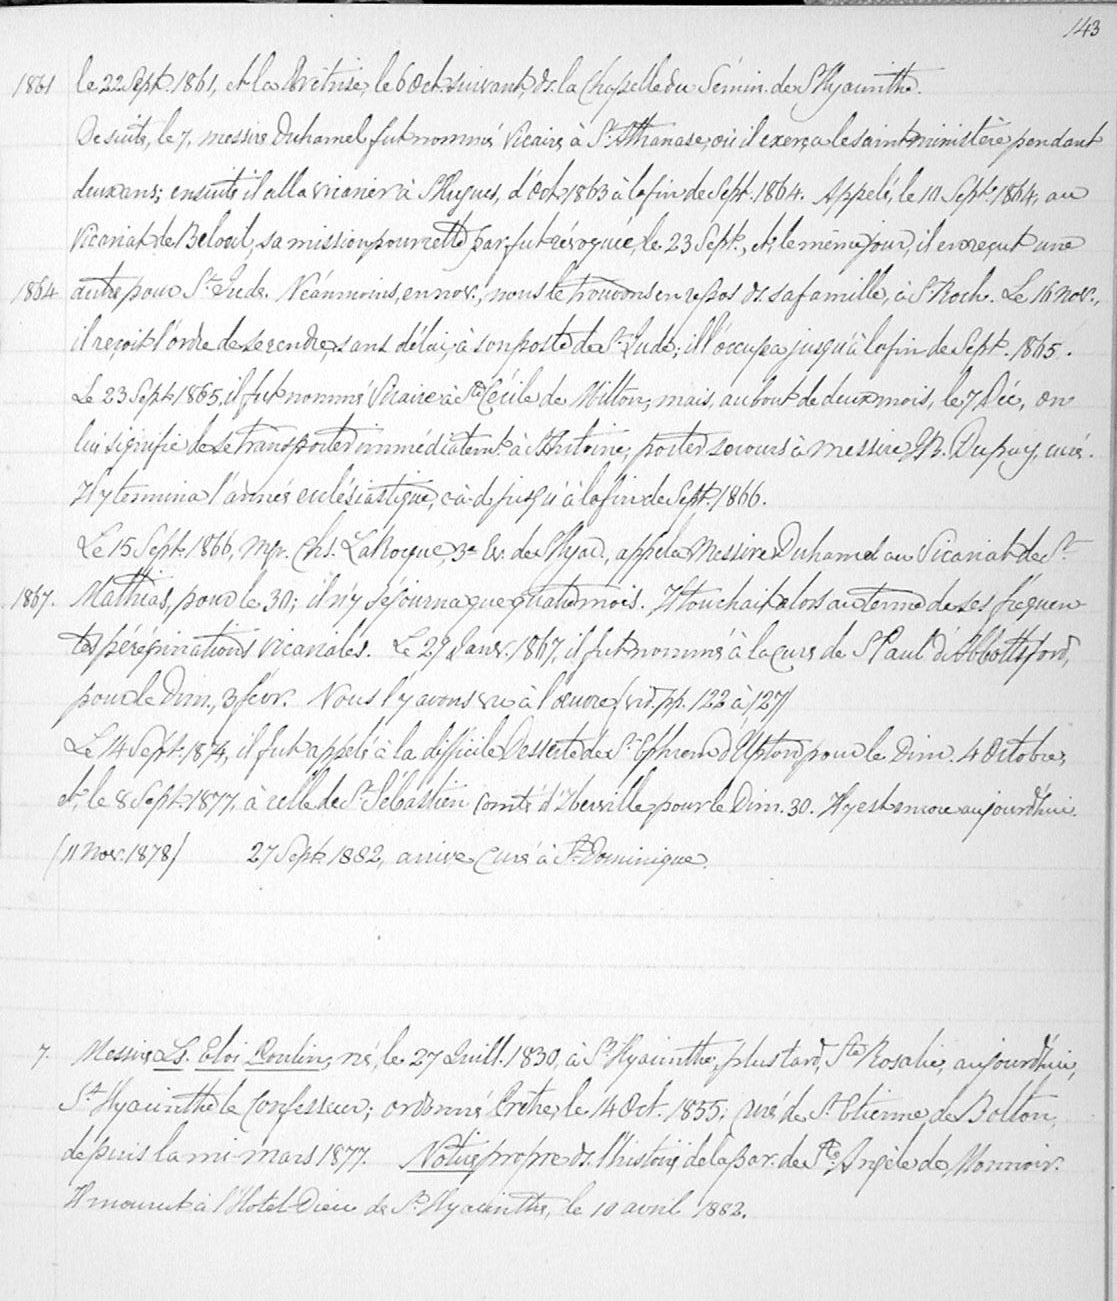 143
1861 le 22 Sept. 1861, et la Prêtrise, le 6 Oct. suivant, ds. la Chapelle du Sémin. de St Hyacinthe.
De suite, le 7, messire Duhamel fut nommé Vicaire à St. Athanase, où il exerça le saint ministère pendant
deux ans; ensuite il alla vicarier à St Hugues, d'Oct. 1863 à la fin de Sept. 1864. Appelé, le 10 Sept. 1864, au
Vicariat de Beloeil, sa mission pour cette par. fut révoquée, le 23 Sept., et, le même jour, il en reçut une
1864 autre pour St. Jude. Néanmoins, en nov., nous le trouvons en repos ds. sa famille, à St Roch. Le 16 Nov.,
il reçoit l'ordre de se rendre, sans délai, à son poste de St. Jude; il l'occupa jusqu'à la fin de Sept. 1865.
Le 23 Sept. 1865, il fut nommé Vicaire à Ste Cécile de Milton; mais, au bout de deux mois, le 7 Déc., on
lui signifie de se transporter immédiatemt. à St Antoine, porter secours à messire J.B. Dupuy, curé.
Il y termina l'année ecclésiastique, c-à-d. jusqu'à la fin de Sept. 1866.
Le 15 Sept. 1866, Mgr. Chs. LaRocque, 3e Ev. de St Hyac., appela Messire Duhamel au Vicariat de St.
1867. Mathias, pour le 30; il n'y séjourna que quatre mois. Il touchait alors au terme de ses fréquen-
tes pérégrinations vicariales. Le 27 Janv. 1867, il fut nommé à la cure de St Paul d'Abbottsford,
pour le Dim., 3 févr. Nous l'y avons vu à l'œuvre (vid. pp. 122 à 127)
Le 14 Sept. 1874, il fut appelé à la difficile Desserte de St. Ephrem d'Upton pour le Dim. 4 Octobre,
et, le 8 Sept. 1877, à celle de St. Sébastien Comté d'Iberville, pour le Dim. 30. Il y est encore aujourd'hui.
(11 Nov. 1878) 27 Sept. 1882, arrive Curé à St. Dominique.
7. Messire Ls. Eloi Poulin, né, le 27 Juill. 1830, à St. Hyacinthe, plus tard, Ste Rosalie, aujourd'hui,
St. Hyacinthe le Confesseur; ordonné Prêtre, le 14 Oct. 1855; curé de St. Etienne de Bolton,
depuis la mi-mars 1877. Notice propre ds. l'histoire de la par. de Ste. Angèle de Monnoir.
Il mourut à l'Hotel-Dieu de St. Hyacinthe, le 10 avril 1882.